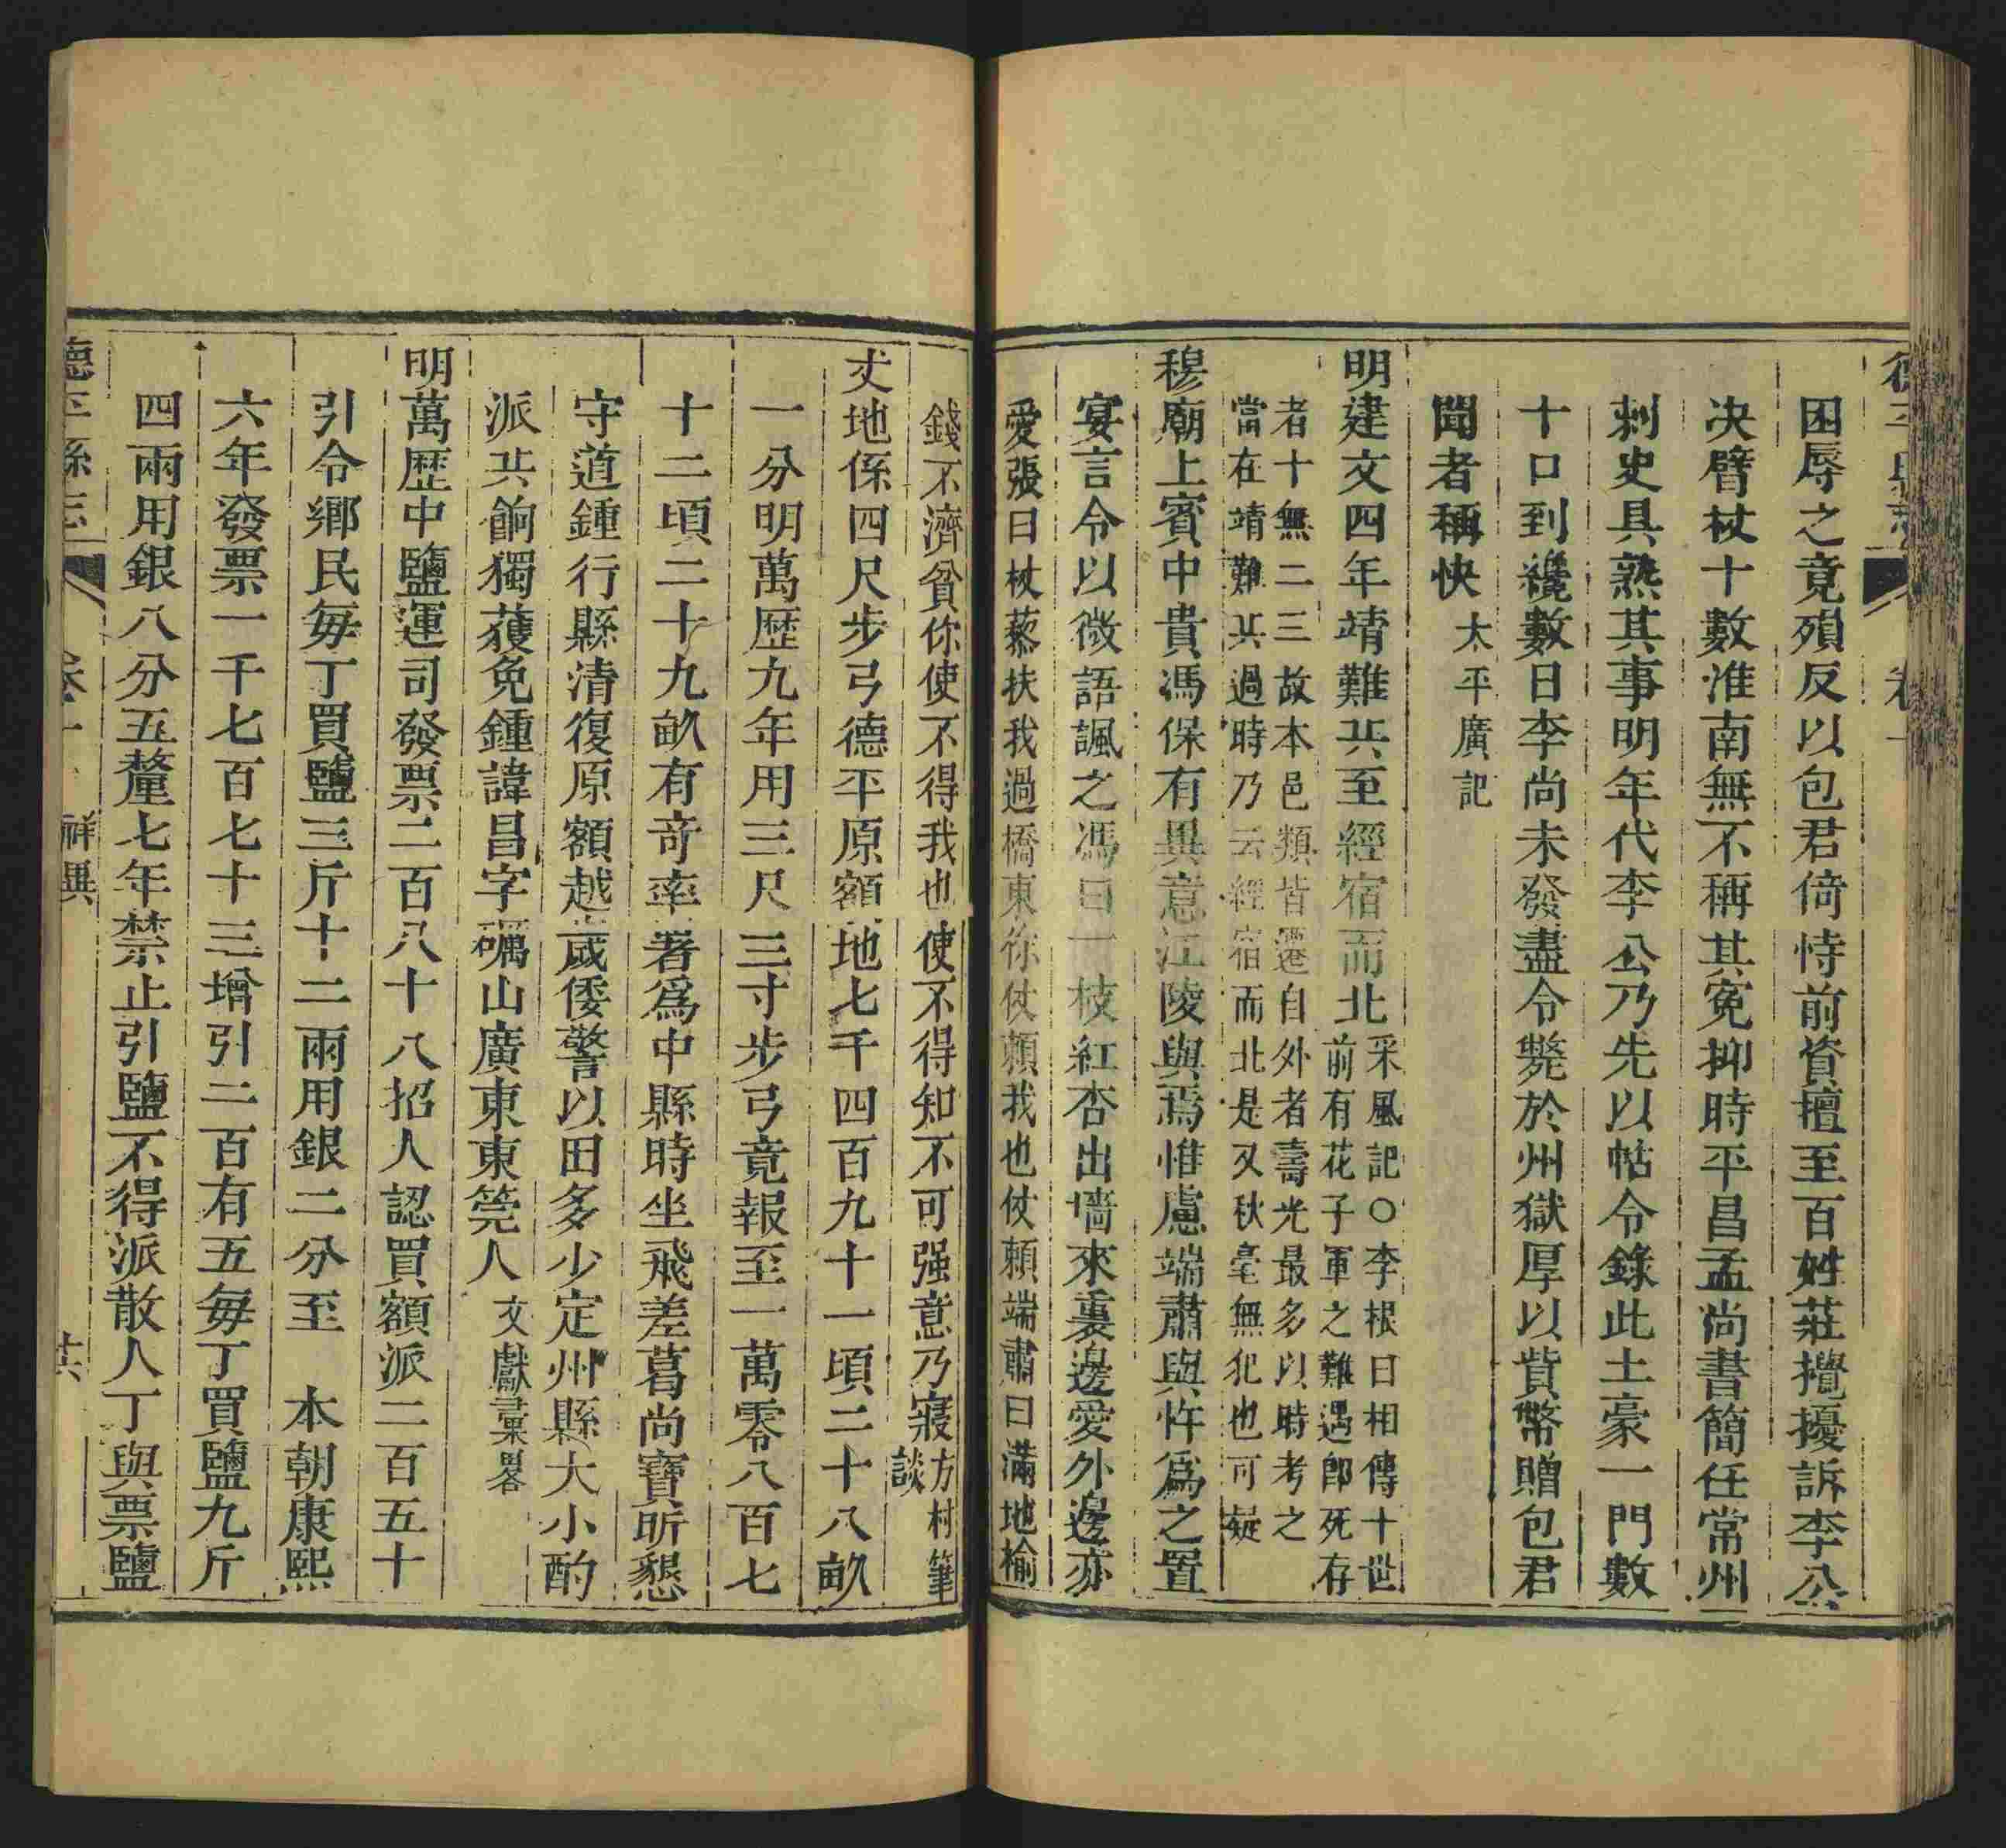 困辱之竟殞反以包君倚恃前資擅至百姓莊攪擾訴李公
决臂杖十數淮南無不稱其冤抑時平昌孟尚書簡任常州
刺史具熟其事明年代李公乃先以帖令錄此土豪一門數
十口到纔數日李尚未發盡令斃於州獄厚以貲幣贈包君
聞者稱快太平廣記
明建文四年靖難兵至經宿而北采風記○李根曰相傳十世
前有花子軍之難遇卽死存
者十無二三故本邑類皆遷自外者壽光最多以時考之
當在靖難兵過時乃云經宿而北是又秋毫無犯也可疑
穆廟上賓中貴馮保有異意江陵與焉惟慮端肅與忤爲之置
宴言令以微語諷之馮曰一枝紅杏出墻來裏邊愛外邊亦
愛張曰杖藜扶我過橋東徐仗頼我也仗頼端肅曰滿地榆
錢不濟貧你使不得我也使不得知不可强意乃寢方村筆
談
丈地係四尺步弓德平原額地七千四百九十一頃二十八畝
一分明萬歴九年用三尺三寸步弓竟報至一萬零八百七
十二頃二十九畝有奇率署爲中縣時坐飛差葛尚寶昕懇
守道鍾行縣清復原額越歲倭警以田多少定州縣大小酌
派兵餉獨獲免鍾諱昌字礪山廣東東莞人文獻彙畧
明萬歴中鹽運司發票二百八十八招人認買額派二百五十
引令鄉民每丁買鹽三斤十二兩用銀二分至　本朝康熙
六年發票一千七百七十三增引二百有五每丁買鹽九斤
四兩用銀八分五釐七年禁止引鹽不得派散人丁與票鹽
德平縣志　卷十　祥異　廿六